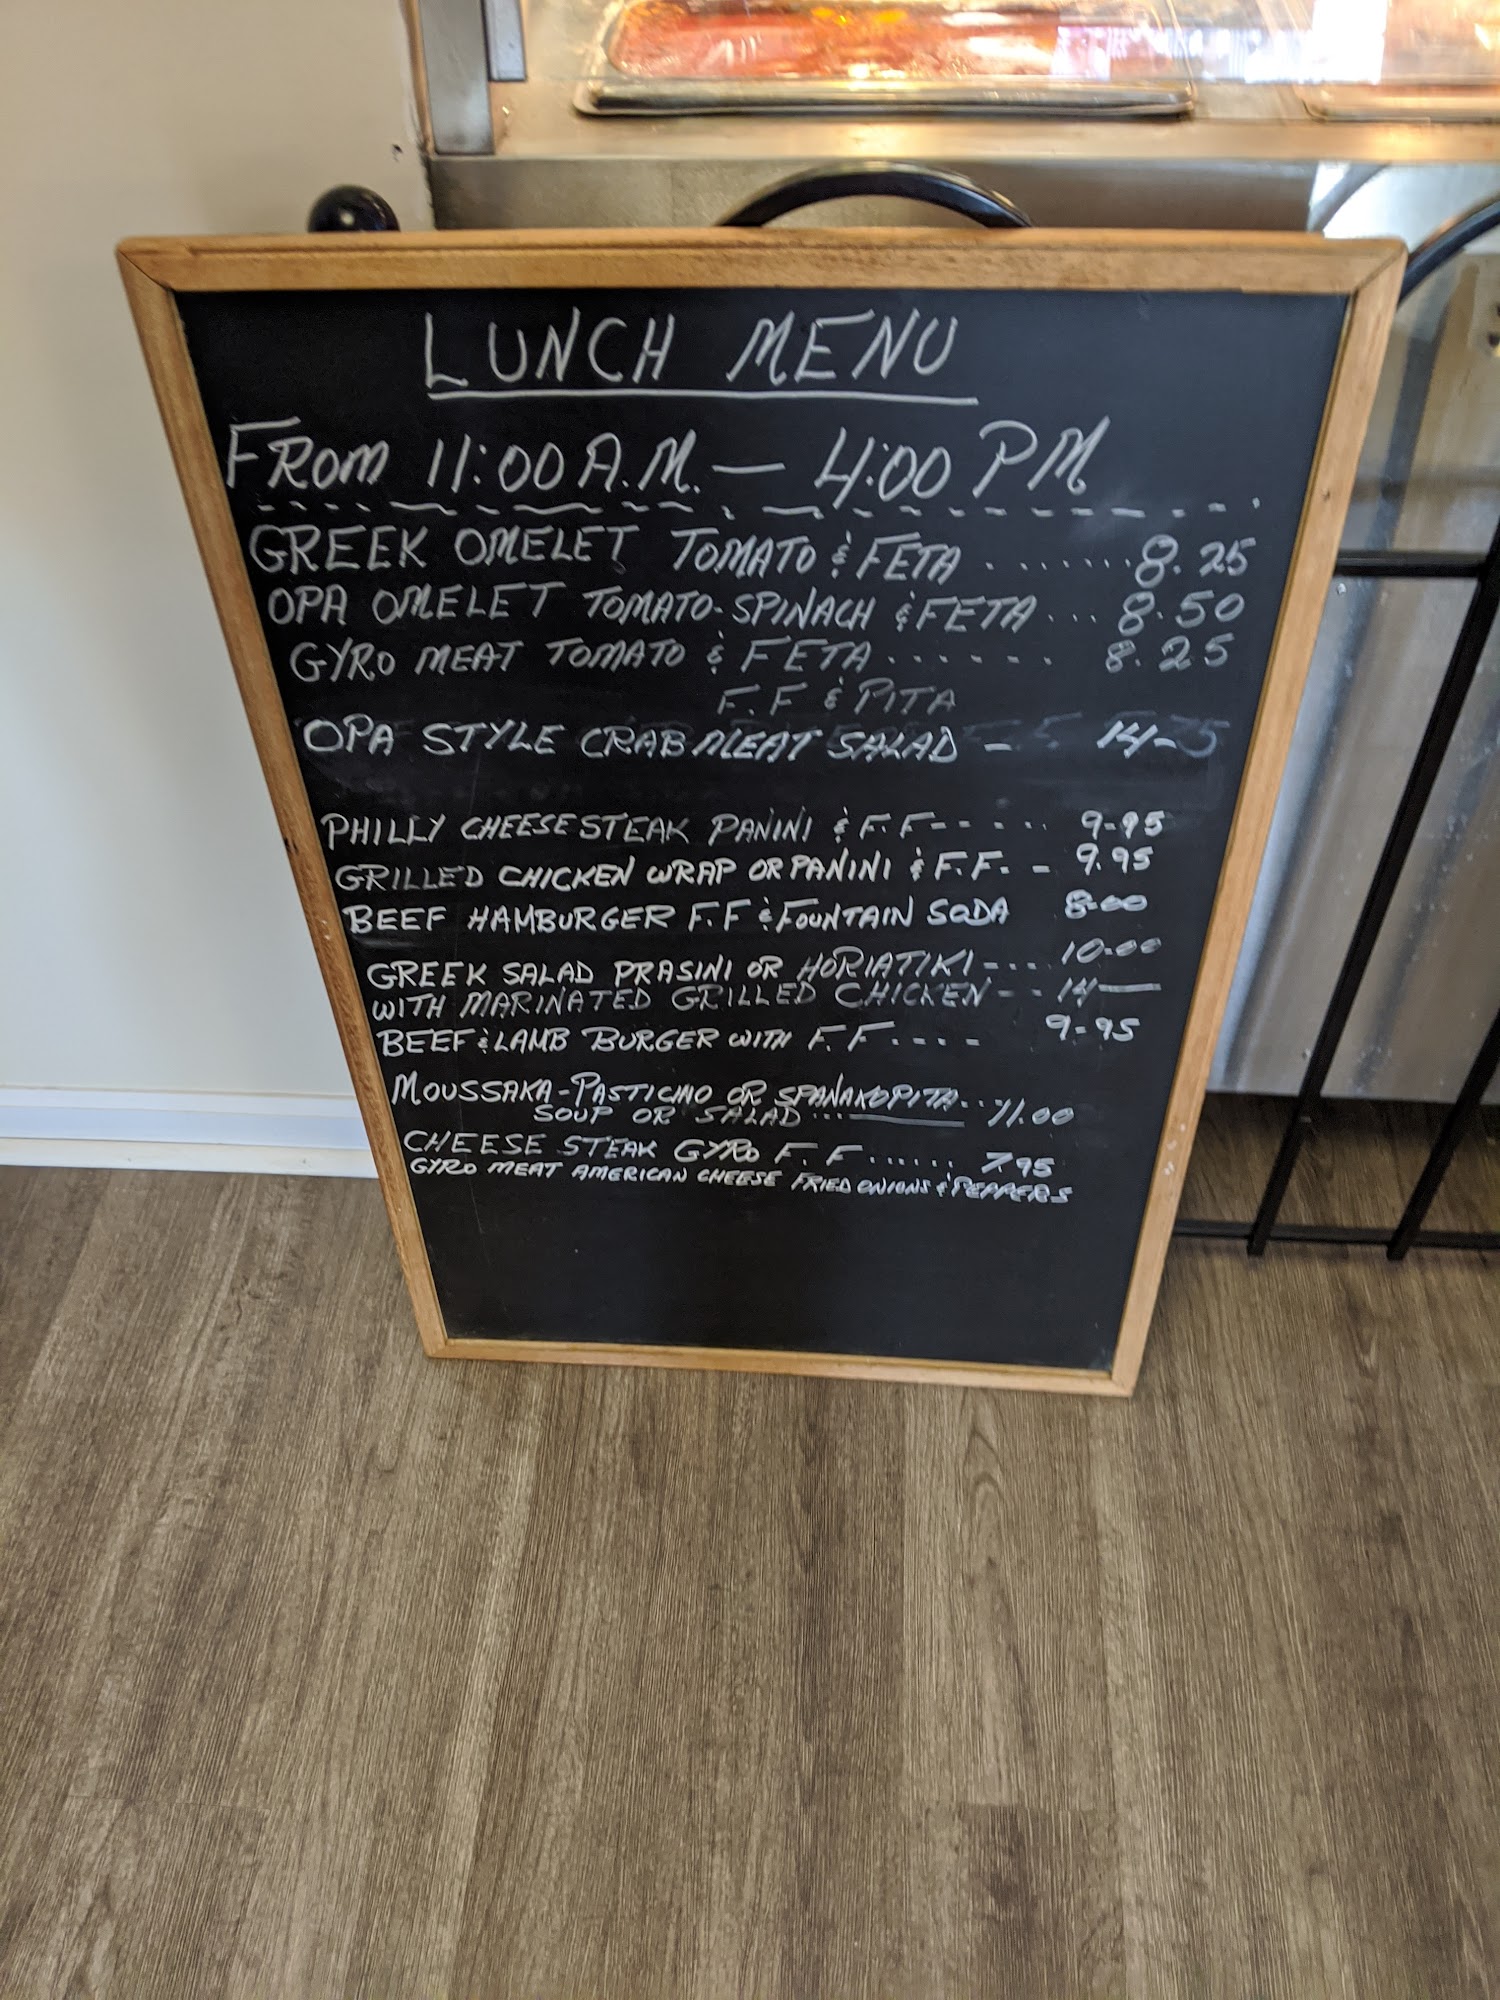 LUNCH MENU
FROM 11:00 A.M. — 4:00 PM
GREEK OMELET TOMATO & FETA ....... 8.25
OPA OMELET TOMATO-SPINACH & FETA ... 8.50
GYRO MEAT TOMATO & FETA ....... 8.25
F.F & PITA
OPA STYLE CRAB MEAT SALAD - 14-
PHILLY CHEESESTEAK PANINI & F.F - - . . . 9-95
GRILLED CHICKEN WRAP OR PANINI & F.F. - 9.95
BEEF HAMBURGER F.F & FOUNTAIN SODA 8-00
GREEK SALAD PRASINI OR HORIATIKI - . . . 10-00
WITH MARINATED GRILLED CHICKEN - - 14—
BEEF & LAMB BURGER WITH F.F . . . - 9-95
MOUSSAKA-PASTICHIO OR SPANAKOPITA...
SOUP OR SALAD ... 11.00
CHEESE STEAK GYRO F.F ...... 7.95
GYRO MEAT AMERICAN CHEESE FRIED ONIONS & PEPPERS